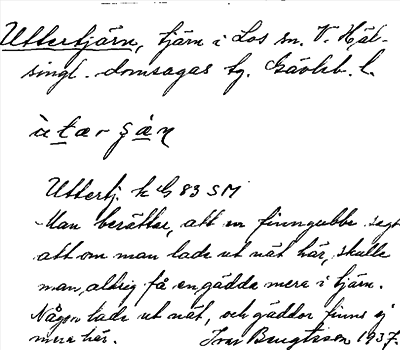 Uttertjärn, tjärn i Los sn. V. Häl-
singl. domsagas tg. Gävleb. l.
ùtær ȿàη
Uttertj. k G 83 SM
Man berättar, att en finngubbe sagt
att om man lade ut nät här, skulle
man aldrig få en gädda mera i tjärn.
Någon lade ut nät, och gäddor finns ej
mera här. Ivar Bengtsson 1937.